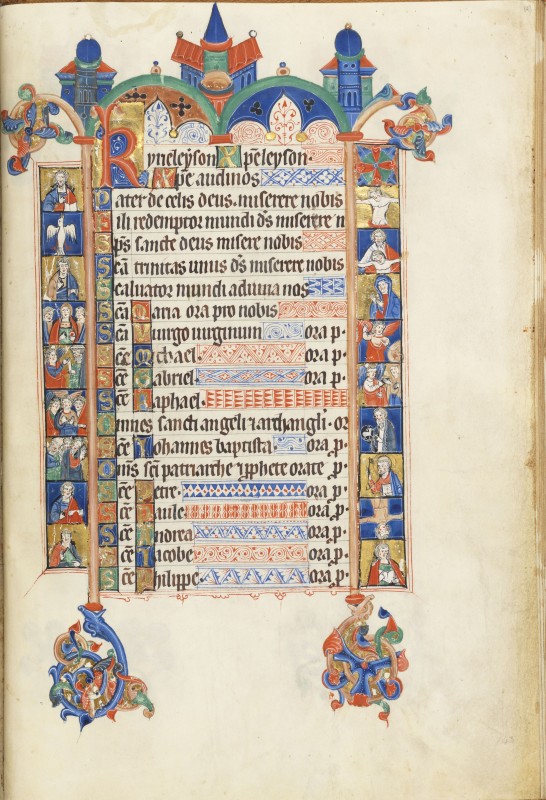 Kyneleyson Xpeleyson.
Xpe audinos
Pater de celis deus. miserere nobis
Fili redemptor mundi ds miserere n
Sps sancte deus misere nobis
Sca trinitas unus ds miserere nobis
Saluator mundi adiuua nos
Sca Maria ora pro nobis
Sca Virgo uirginum ora p.
Sce Michael. ora p.
Sce Gabriel. ora p.
Sce Raphael. ora p.
Omnes sancti angeli ⁊ archangli. or
Sce Iohannes baptista. ora p.
Oms sci patriarche ⁊ pphete orate p.
Sce Petre. ora p.
Sce Paule. ora p.
Sce Andrea ora p.
Sce Iacobe ora p.
Sce Philippe. ora p.